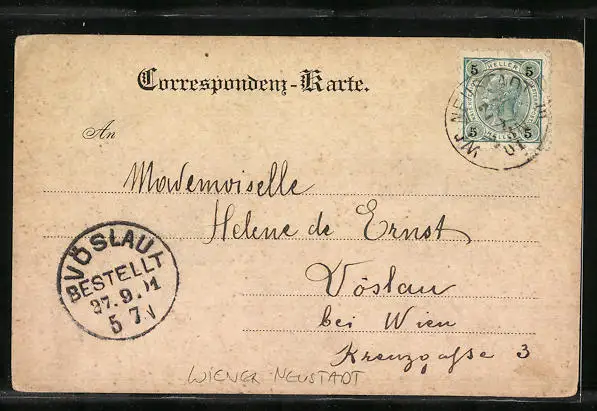 Correspondenz-Karte.
5 HELLER 5
5 HELLER 5
WR. NEUSTADT
01
An
Mademoiselle
Helene de Ernst
Vöslau
bei Wien
Kreuzgasse 3
VÖSLAU 1
BESTELLT
27.9.01
5 7.N
WIENER-NEUSTADT